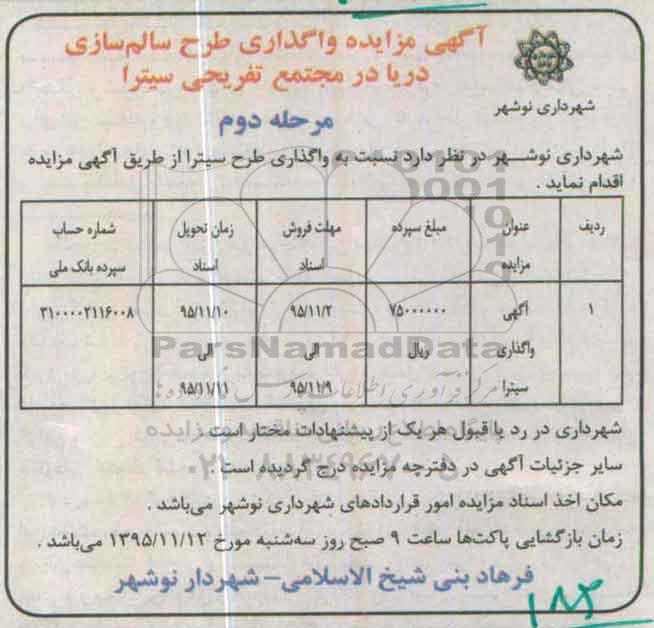 آگهی مزایده واگذاری طرح سالم‌سازی
دریا در مجتمع تفریحی سیترا
شهرداری نوشهر
مرحله دوم
شهرداری نوشهر در نظر دارد نسبت به واگذاری طرح سیترا از طریق آگهی مزایده
اقدام نماید .
ردیف عنوان مبلغ سپرده مهلت فروش زمان تحویل شماره حساب
مزایده اسناد اسناد سپرده بانک ملی
۱ آگهی ۷۵۰۰۰۰۰۰ ۹۵/۱۱/۲ ۹۵/۱۱/۱۰ ۳۱۰۰۰۰۲۱۱۶۰۰۸
واگذاری ریال الی الی
سیترا ۹۵/۱۱/۹ ۹۵/۱۱/۱۱
ParsNamadData
شهرداری در رد یا قبول هر یک از پیشنهادات مختار است .
سایر جزئیات آگهی در دفترچه مزایده درج گردیده است .
۰۲۱-۸۸۳۴۹۶۷۰-۵
مکان اخذ اسناد مزایده امور قراردادهای شهرداری نوشهر می‌باشد .
زمان بازگشایی پاکت‌ها ساعت ۹ صبح روز سه‌شنبه مورخ ۱۳۹۵/۱۱/۱۲ می‌باشد .
فرهاد بنی شیخ الاسلامی – شهردار نوشهر